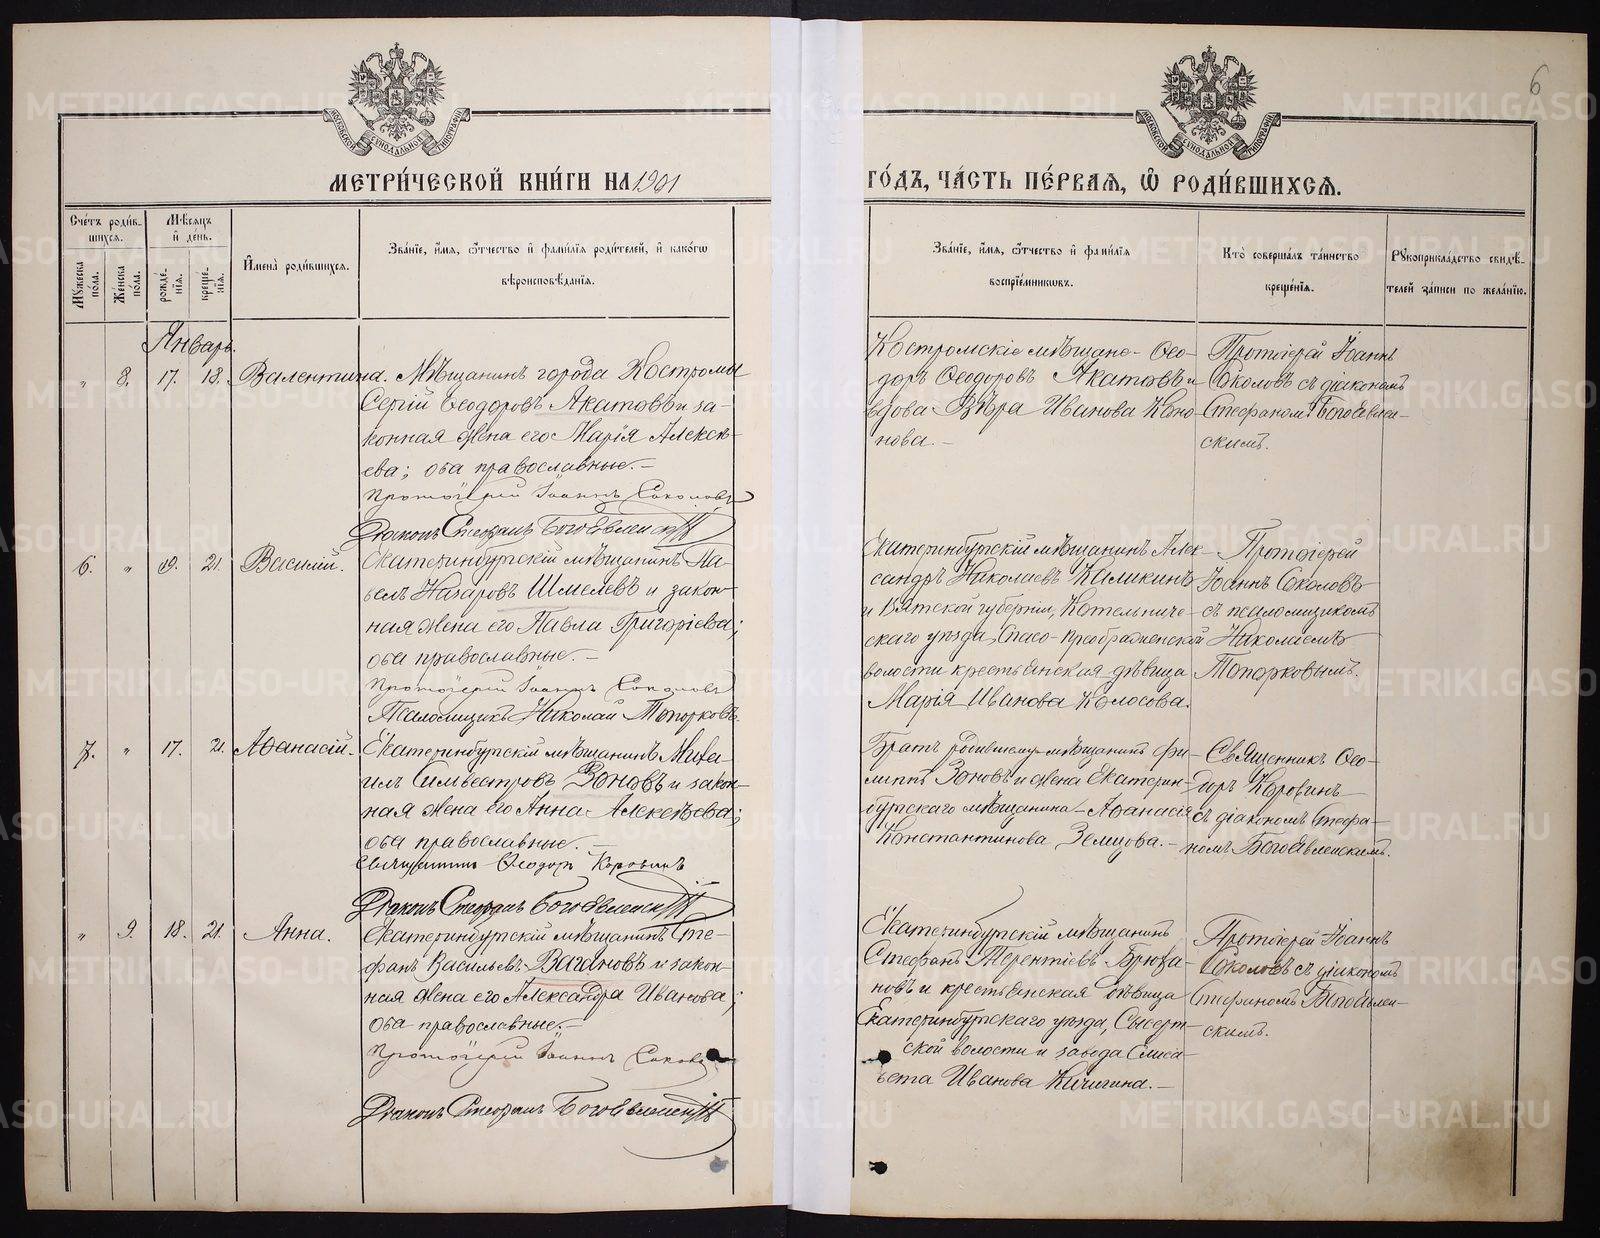 6
МОСКОВСКОЙ СѴНОДАЛЬНОЙ ТИПОГРАФІИ
МОСКОВСКОЙ СѴНОДАЛЬНОЙ ТИПОГРАФІИ
МЕТРИ́ЧЕСКОЙ КНИ́ГИ НА 1901
ГО́ДЪ, ЧА́СТЬ ПЕ́РВАЯ, Ѽ РОДИ́ВШИХСЯ.
Сче́тъ роди́в-
шихся.
Мѣ́сяцъ
и҆ де́нь.
Мꙋ́жеска по́ла.
Же́нска по́ла.
рожде́-нїя.
креще́-нїя.
И҆мена̀ роди́вшихся.
Зва́нїе, и҆́мя, ѻ҆́тчество и҆ фами́лїя роди́телей, и҆ како́гѡ
вѣроисповѣ́данїя.
Зва́нїе, и҆́мя, ѻ҆́тчество и҆ фами́лїя
воспрїе́мникѡвъ.
Кто̀ соверша́лъ та́инство
креще́нїя.
Рꙋкоприкла́дство свидѣ́-
телей за́писи по жела́нїю.
Январь.
" 8. 17. 18. Валентина. Мѣщанинъ города Костромы
Сергій Ѳеодоровъ Акатовъ и за-
конная жена его Марія Алексѣ-
ева; оба православные.-
Протоіерей Іоаннъ Соколовъ
Діаконъ Стефанъ Богоявленскій
Костромскіе мѣщане - Ѳео-
доръ Ѳеодоровъ Акатовъ и
вдова Вѣра Иванова Коно-
нова.-
Протоіерей Іоаннъ
Соколовъ съ діакономъ
Стефаномъ Богоявлен-
скимъ.
6. " 19. 21. Василій. Екатеринбургскій мѣщанинъ Па-
велъ Назаровъ Шмелевъ и закон-
ная жена его Павла Григоріева;
оба православные.-
Протоіерей Іоаннъ Соколовъ
Псаломщикъ Николай Топорковъ
Екатеринбургскій мѣщанинъ Алек-
сандръ Николаевъ Каликинъ
и Вятской губерніи, Котельниче-
скаго уѣзда, Спасо-Преображенской
волости крестьянская дѣвица
Марія Иванова Колосова.
Протоіерей
Іоаннъ Соколовъ
съ псаломщикомъ
Николаемъ
Топорковымъ.
7. " 17. 21. Аѳанасій. Екатеринбургскій мѣщанинъ Миха-
илъ Сильвестровъ Зоновъ и закон-
ная жена его Анна Алексѣева;
оба православные.-
Священникъ Ѳеодоръ Коровинъ
Діаконъ Стефанъ Богоявленскій
Братъ родившему мѣщанинъ Фи-
липпъ Зоновъ и жена Екатерин-
бургскаго мѣщанина - Аѳанасія
Константинова Земцова.-
Священникъ Ѳео-
доръ Коровинъ
съ діакономъ Стефа-
номъ Богоявленскимъ.
" 9. 18. 21. Анна. Екатеринбургскій мѣщанинъ Сте-
фанъ Васильевъ Вагановъ и закон-
ная жена его Александра Иванова;
оба православные.-
Протоіерей Іоаннъ Соколовъ
Діаконъ Стефанъ Богоявленскій
Екатеринбургскій мѣщанинъ
Стефанъ Терентіевъ Брюха-
новъ и крестьянская дѣвица
Екатеринбургскаго уѣзда, Сысерт-
ской волости и завода Елиса-
вета Иванова Кичигина.-
Протоіерей Іоаннъ
Соколовъ съ діакономъ
Стефаномъ Богоявлен-
скимъ.
METRIKI.GASO-URAL.RU